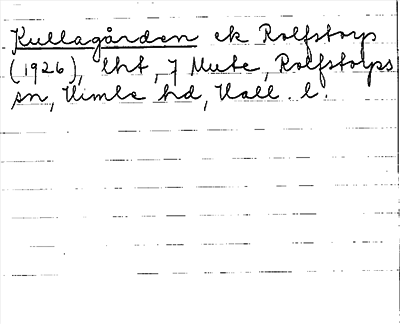 Kullagården ek Rolfstorp
(1926), lht, J Mute, Rolfstorps
sn, Himle hd, Hall. l.